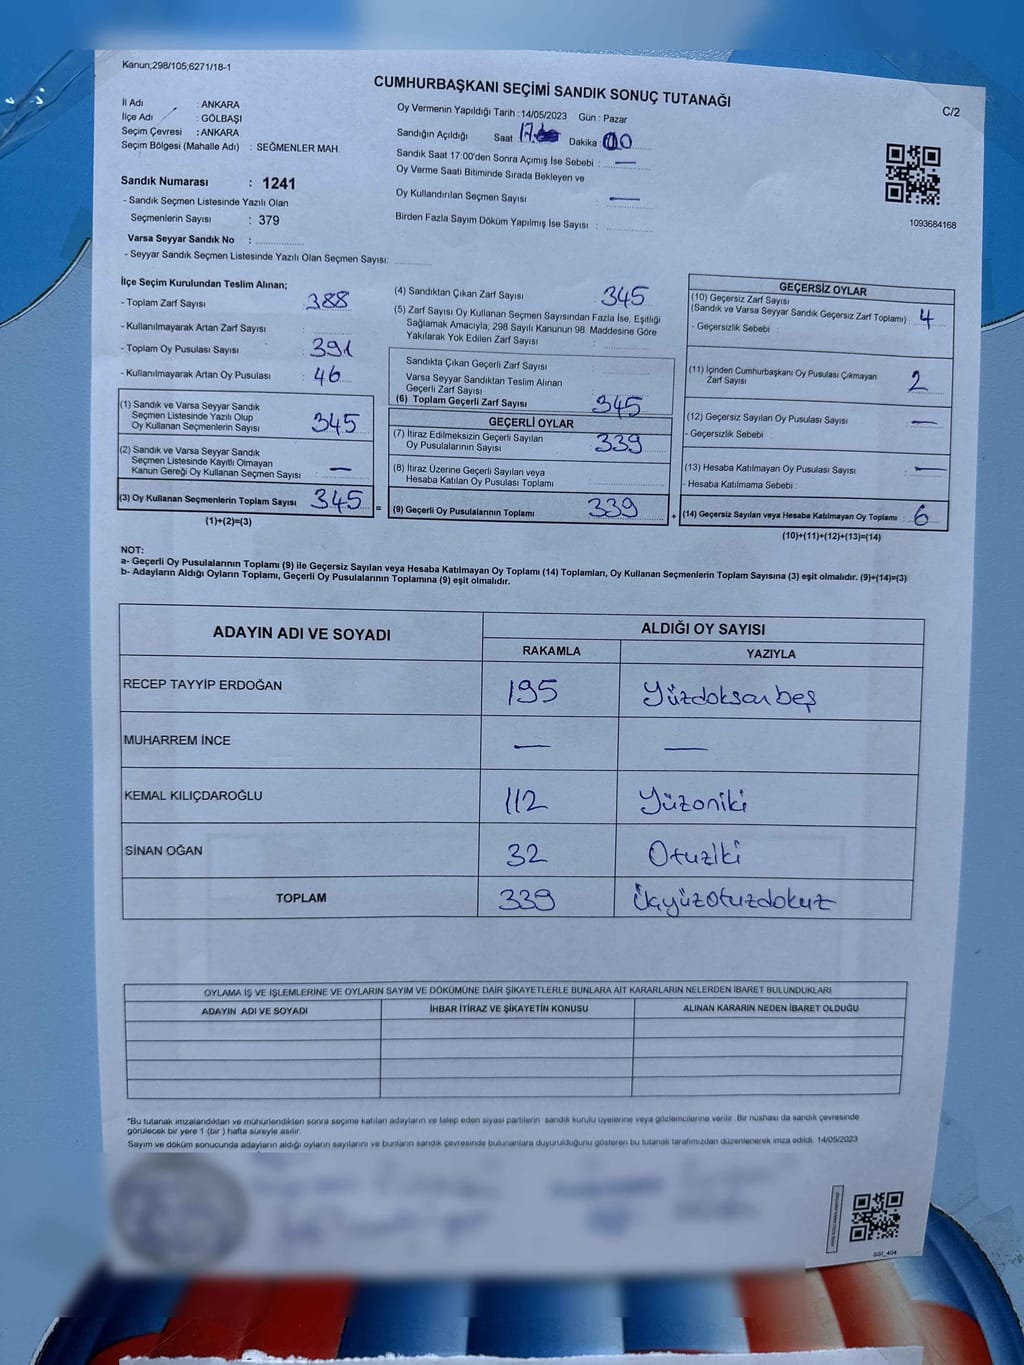 Kanun;298/105,6271/18-1
CUMHURBAŞKANI SEÇİMİ SANDIK SONUÇ TUTANAĞI
C/2
İl Adı : ANKARA
İlçe Adı : GÖLBAŞI
Seçim Çevresi : ANKARA
Seçim Bölgesi (Mahalle Adı) : SEĞMENLER MAH.
Sandık Numarası : 1241
- Sandık Seçmen Listesinde Yazılı Olan
Seçmenlerin Sayısı : 379
Varsa Seyyar Sandık No :
- Seyyar Sandık Seçmen Listesinde Yazılı Olan Seçmen Sayısı:
Oy Vermenin Yapıldığı Tarih :14/05/2023 Gün : Pazar
Sandığın Açıldığı Saat 17 Dakika : 00
Sandık Saat 17:00'den Sonra Açımış İse Sebebi : —
Oy Verme Saati Bitiminde Sırada Bekleyen ve
Oy Kullandırılan Seçmen Sayısı : —
Birden Fazla Sayım Döküm Yapılmış İse Sayısı :
1093684168
İlçe Seçim Kurulundan Teslim Alınan;
- Toplam Zarf Sayısı : 388
- Kullanılmayarak Artan Zarf Sayısı :
- Toplam Oy Pusulası Sayısı : 391
- Kullanılmayarak Artan Oy Pusulası : 46
(1) Sandık ve Varsa Seyyar Sandık
Seçmen Listesinde Yazılı Olup
Oy Kullanan Seçmenlerin Sayısı : 345
(2) Sandık ve Varsa Seyyar Sandık
Seçmen Listesinde Kayıtlı Olmayan
Kanun Gereği Oy Kullanan Seçmen Sayısı : —
(3) Oy Kullanan Seçmenlerin Toplam Sayısı : 345 =
(1)+(2)=(3)
(4) Sandıktan Çıkan Zarf Sayısı : 345
(5) Zarf Sayısı Oy Kullanan Seçmen Sayısından Fazla İse, Eşitliği
Sağlamak Amacıyla, 298 Sayılı Kanunun 98. Maddesine Göre
Yakılarak Yok Edilen Zarf Sayısı :
Sandıkta Çıkan Geçerli Zarf Sayısı :
Varsa Seyyar Sandıktan Teslim Alınan
Geçerli Zarf Sayısı :
(6) Toplam Geçerli Zarf Sayısı : 345
GEÇERLİ OYLAR
(7) İtiraz Edilmeksizin Geçerli Sayılan
Oy Pusulalarının Sayısı : 339
(8) İtiraz Üzerine Geçerli Sayılan veya
Hesaba Katılan Oy Pusulası Toplamı :
(9) Geçerli Oy Pusulalarının Toplamı : 339 +
GEÇERSİZ OYLAR
(10) Geçersiz Zarf Sayısı
(Sandık ve Varsa Seyyar Sandık Geçersiz Zarf Toplamı) : 4
- Geçersizlik Sebebi :
(11) İçinden Cumhurbaşkanı Oy Pusulası Çıkmayan
Zarf Sayısı : 2
(12) Geçersiz Sayılan Oy Pusulası Sayısı : —
- Geçersizlik Sebebi :
(13) Hesaba Katılmayan Oy Pusulası Sayısı : —
- Hesaba Katılmama Sebebi :
(14) Geçersiz Sayılan veya Hesaba Katılmayan Oy Toplamı : 6
(10)+(11)+(12)+(13)=(14)
NOT:
a- Geçerli Oy Pusulalarının Toplamı (9) ile Geçersiz Sayılan veya Hesaba Katılmayan Oy Toplamı (14) Toplamları, Oy Kullanan Seçmenlerin Toplam Sayısına (3) eşit olmalıdır. (9)+(14)=(3)
b- Adayların Aldığı Oyların Toplamı, Geçerli Oy Pusulalarının Toplamına (9) eşit olmalıdır.
ADAYIN ADI VE SOYADI ALDIĞI OY SAYISI
RAKAMLA YAZIYLA
RECEP TAYYİP ERDOĞAN 195 Yüzdoksanbeş
MUHARREM İNCE — —
KEMAL KILIÇDAROĞLU 112 Yüzoniki
SİNAN OĞAN 32 Otuziki
TOPLAM 339 Üçyüzotuzdokuz
OYLAMA İŞ VE İŞLEMLERİNE VE OYLARIN SAYIM VE DÖKÜMÜNE DAİR ŞİKAYETLERLE BUNLARA AİT KARARLARIN NELERDEN İBARET BULUNDUKLARI
ADAYIN ADI VE SOYADI İHBAR İTİRAZ VE ŞİKAYETİN KONUSU ALINAN KARARIN NEDEN İBARET OLDUĞU
*Bu tutanak imzalandıktan ve mühürlendikten sonra seçime katılan adayların ve talep eden siyasi partilerin sandık kurulu üyelerine veya gözlemcilerine verilir. Bir nüshası da sandık çevresinde
görülecek bir yere 1 (bir ) hafta süreyle asılır.
Sayım ve döküm sonucunda adayların aldığı oyların sayılarını ve bunların sandık çevresinde bulunanlara duyurulduğunu gösteren bu tutanak tarafımızdan düzenlenerek imza edildi. 14/05/2023
SSI_404